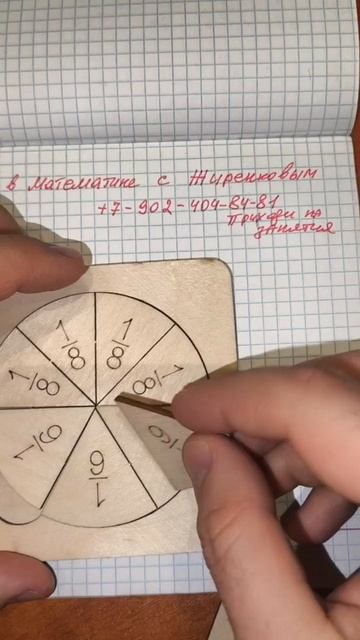 в Математике с Жиренковым
+7-902-404-84-81
Приходи на
занятия
1/8
1/8
1/8
1/8
1/6
1/6
1/6